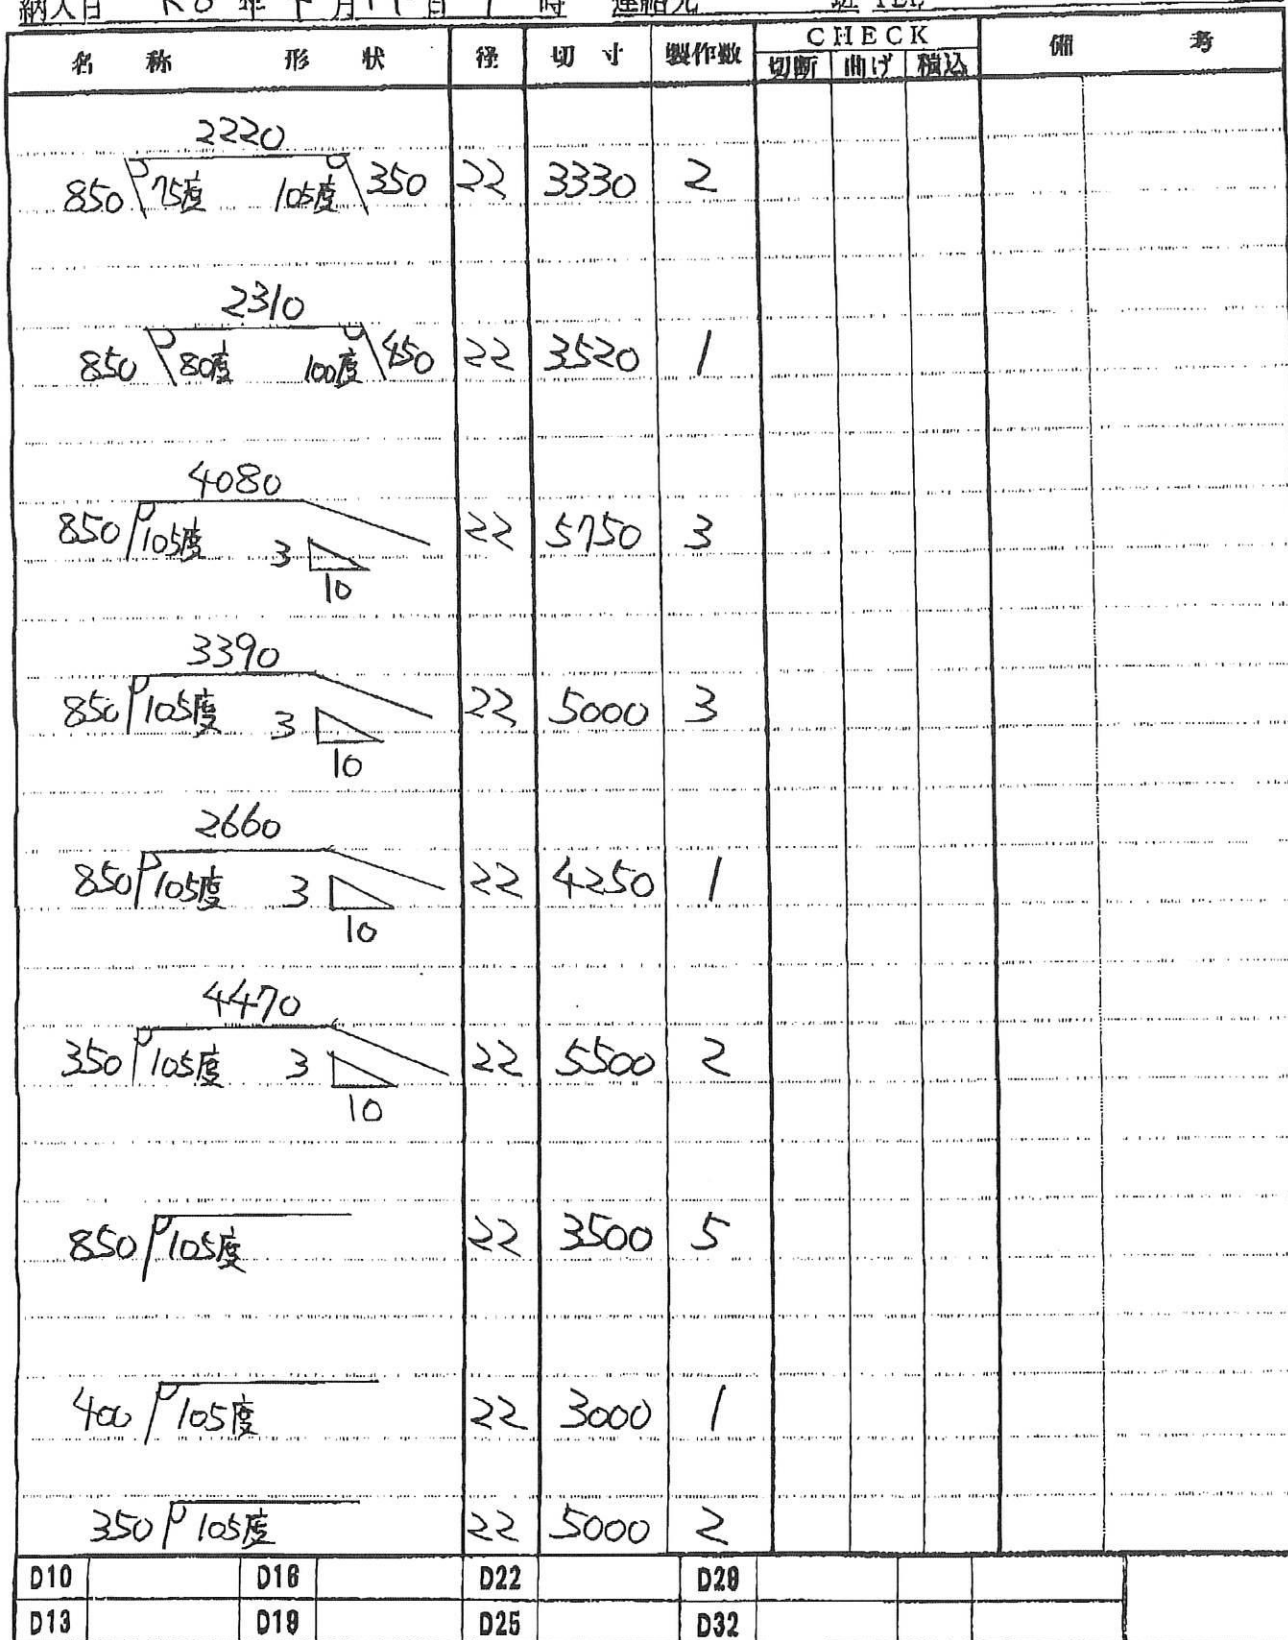 納入日 R8年 月11日 時 連絡先 TEL
名称 形状 径 切寸 製作数 CHECK 備考
切断 曲げ 積込
2220
850 75度 105度 350 22 3330 2
2310
850 80度 100度 450 22 3520 1
4080
850 105度 3 22 5750 3
10
3390
850 105度 3 22 5000 3
10
2660
850 105度 3 22 4250 1
10
4470
350 105度 3 22 5500 2
10
850 105度 22 3500 5
400 105度 22 3000 1
350 105度 22 5000 2
D10 D16 D22 D29
D13 D19 D25 D32